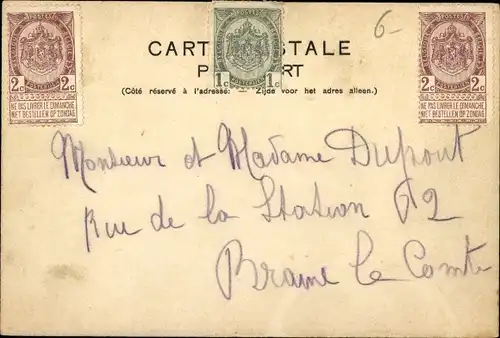 6-
POSTES
POSTERIJEN
2c 2c
NE PAS LIVRER LE DIMANCHE
NIET BESTELLEN OP ZONDAG
POSTES
1c 1c
POSTES
2c 2c
NE PAS LIVRER LE DIMANCHE
NIET BESTELLEN OP ZONDAG
CART STALE
P RT
(Côté réservé à l'adresse: — Zijde voor het adres alleen.)
Monsieur et Madame Dupont
Rue de la Station 62
Braine le Comte